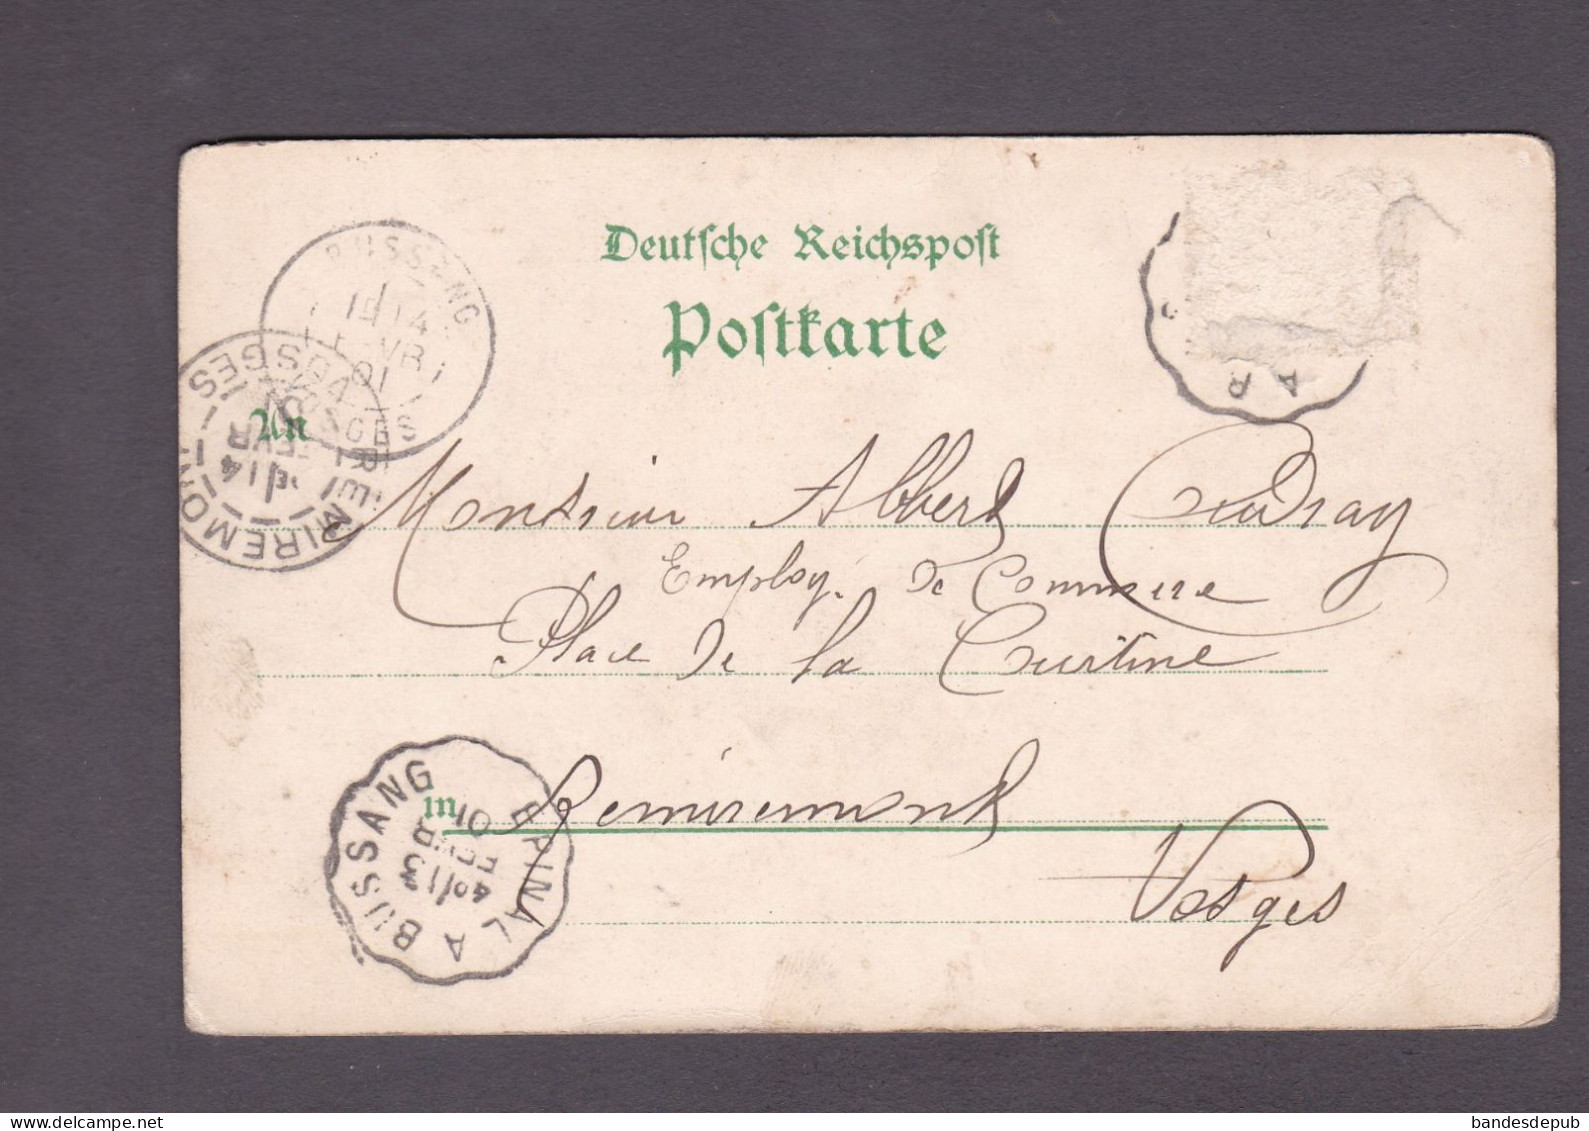 Deutsche Reichspost
Postkarte
BUSSANG
14
FEVR
01
VOSGES
REMIREMONT
14
FEVR
01
VOSGES
A R
An
Monsieur Albert Coudray
Employé de Commerce
Place de la Courtine
in Remiremont
Vosges
EPINAL A BUSSANG
13
FEVR
01
delcampe.net
bandesdepub